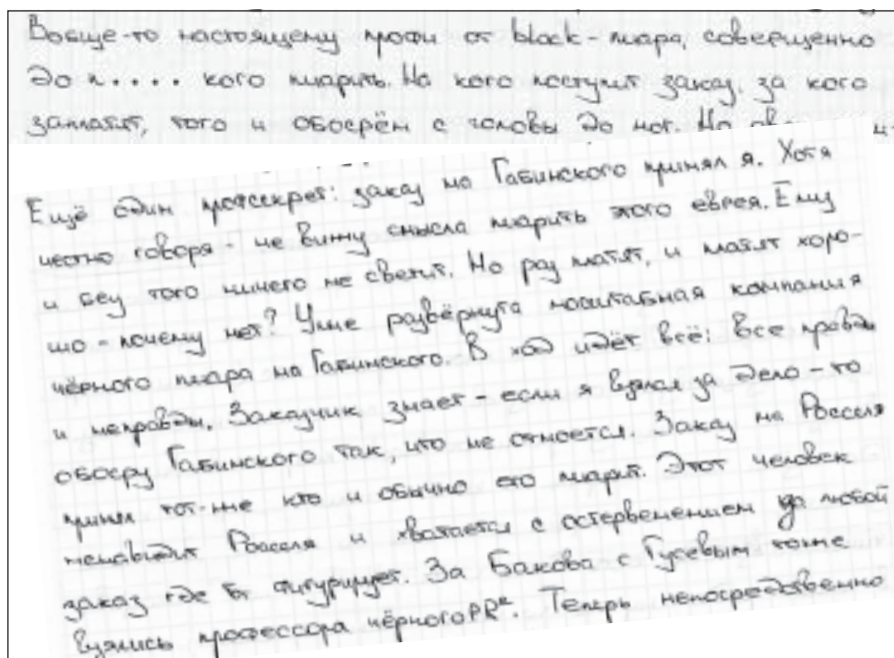 Вообще-то настоящему профи от black-пиара, совершенно
до п.... кого пиарить. На кого поступит заказ, за кого
заплатят, того и обосрём с головы до ног. Но
Ещё один профсекрет: заказ на Габинского принял я. Хотя
честно говоря - не вижу смысла пиарить этого еврея. Ему
и без того ничего не светит. Но раз платят, и платят хоро-
шо - почему нет? Уже развёрнута масштабная компания
чёрного пиара на Габинского. В ход идёт всё: все правды
и неправды. Заказчик знает - если я взялся за дело - то
обосру Габинского так, что не отмоется. Заказ на Росселя
принял тот-же кто и обычно его пиарит. Этот человек
ненавидит Росселя и хватается с остервенением за любой
заказ где Он фигурирует. За Бакова с Гусевым тоже
взялись профессора чёрного PR². Теперь непосредственно